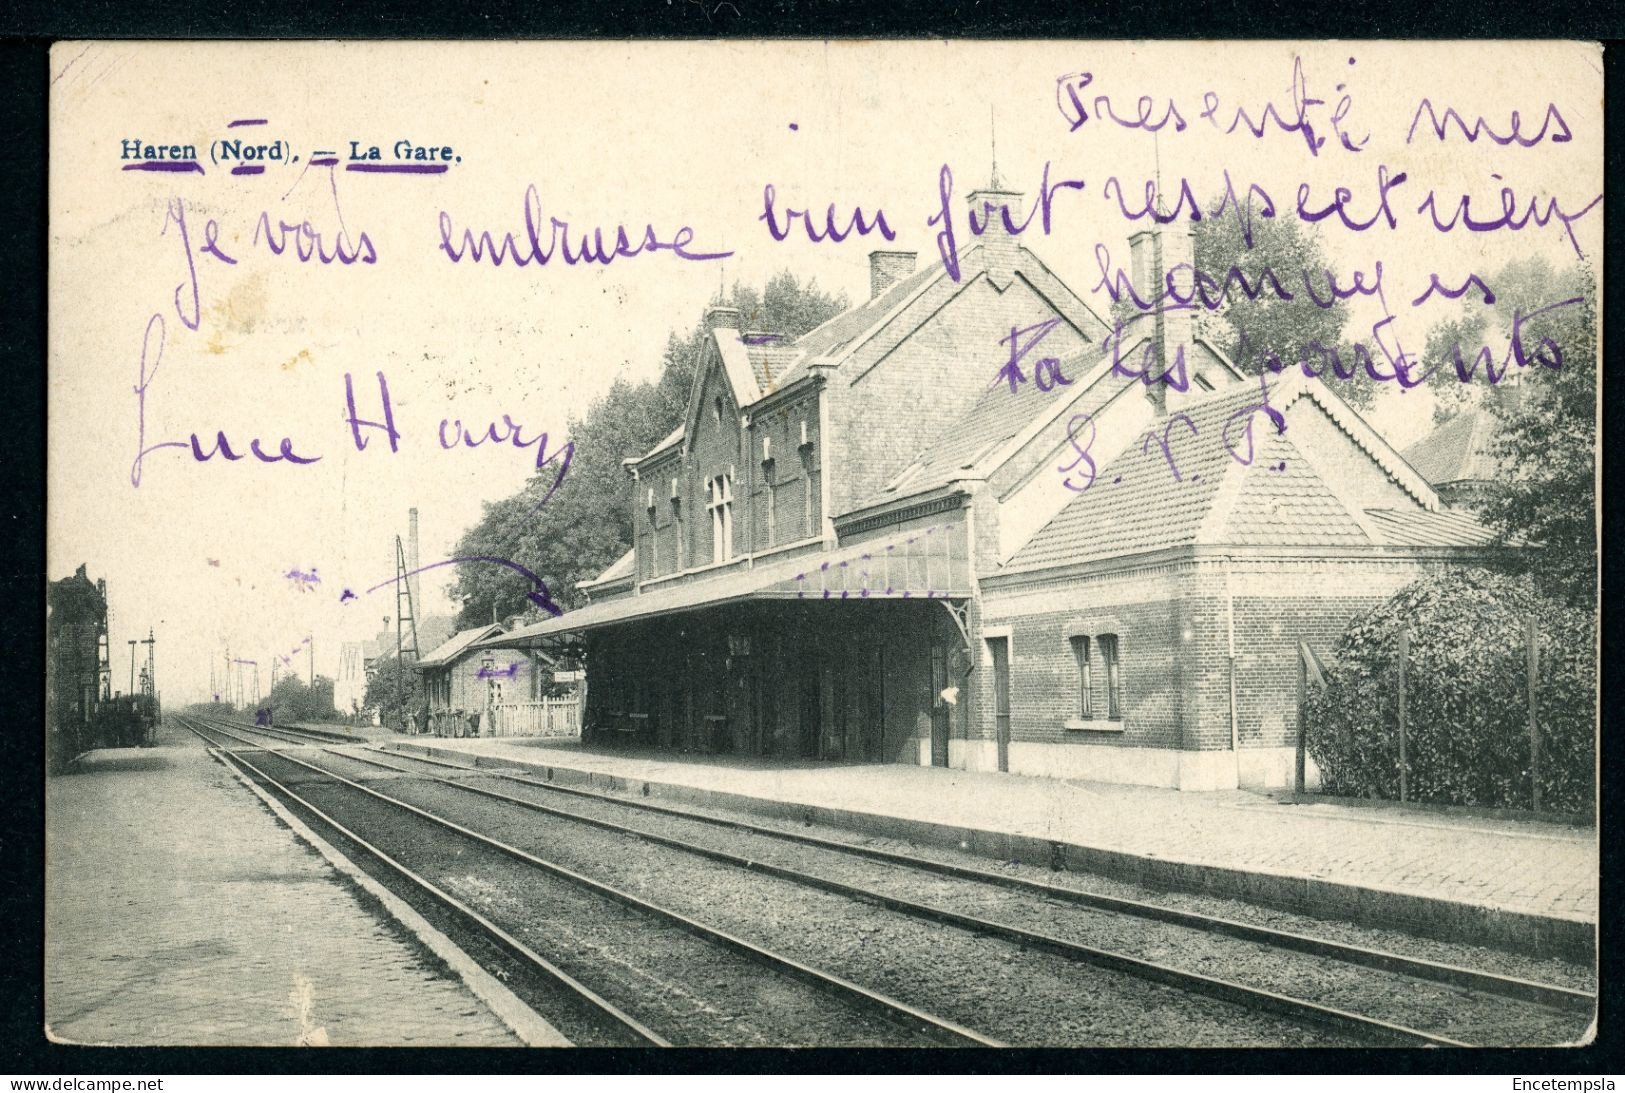 Haren (Nord). — La Gare.
Je vous embrasse bien fort
Luce
Presenté mes
respectueux
à tes parents
S.V.P.
Delcampe.net
Encetempsla